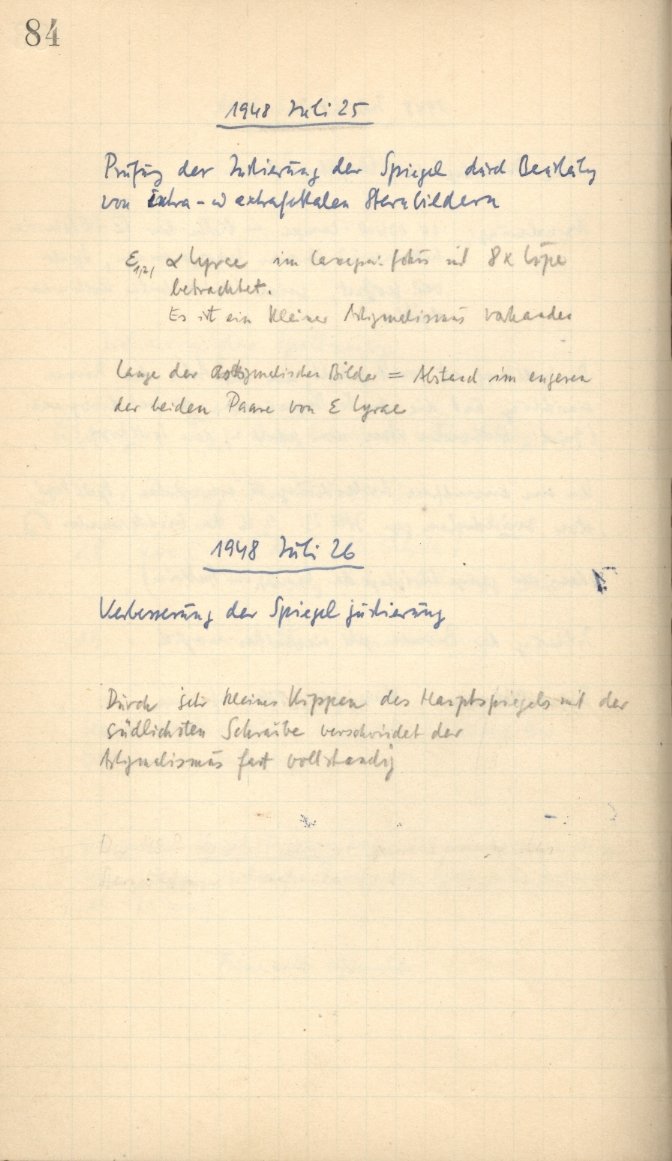 84
1948 Juli 25
Prüfung der Justierung der Spiegel durch
von extra- u extrafokalen Sternbildern
ε1,2, α Lyrae im fokus mit 8x Lupe
betrachtet.
Es ist ein kleiner Astigmatismus vorhanden
Länge der astigmatischen Bilder = Abstand im engeren
der beiden Paare von ε Lyrae
1948 Juli 26
Verbesserung der Spiegeljustierung
Durch sehr kleines Kippen des Hauptspiegels mit der
südlichsten Schraube verschwindet der
Astigmatismus fast vollständig